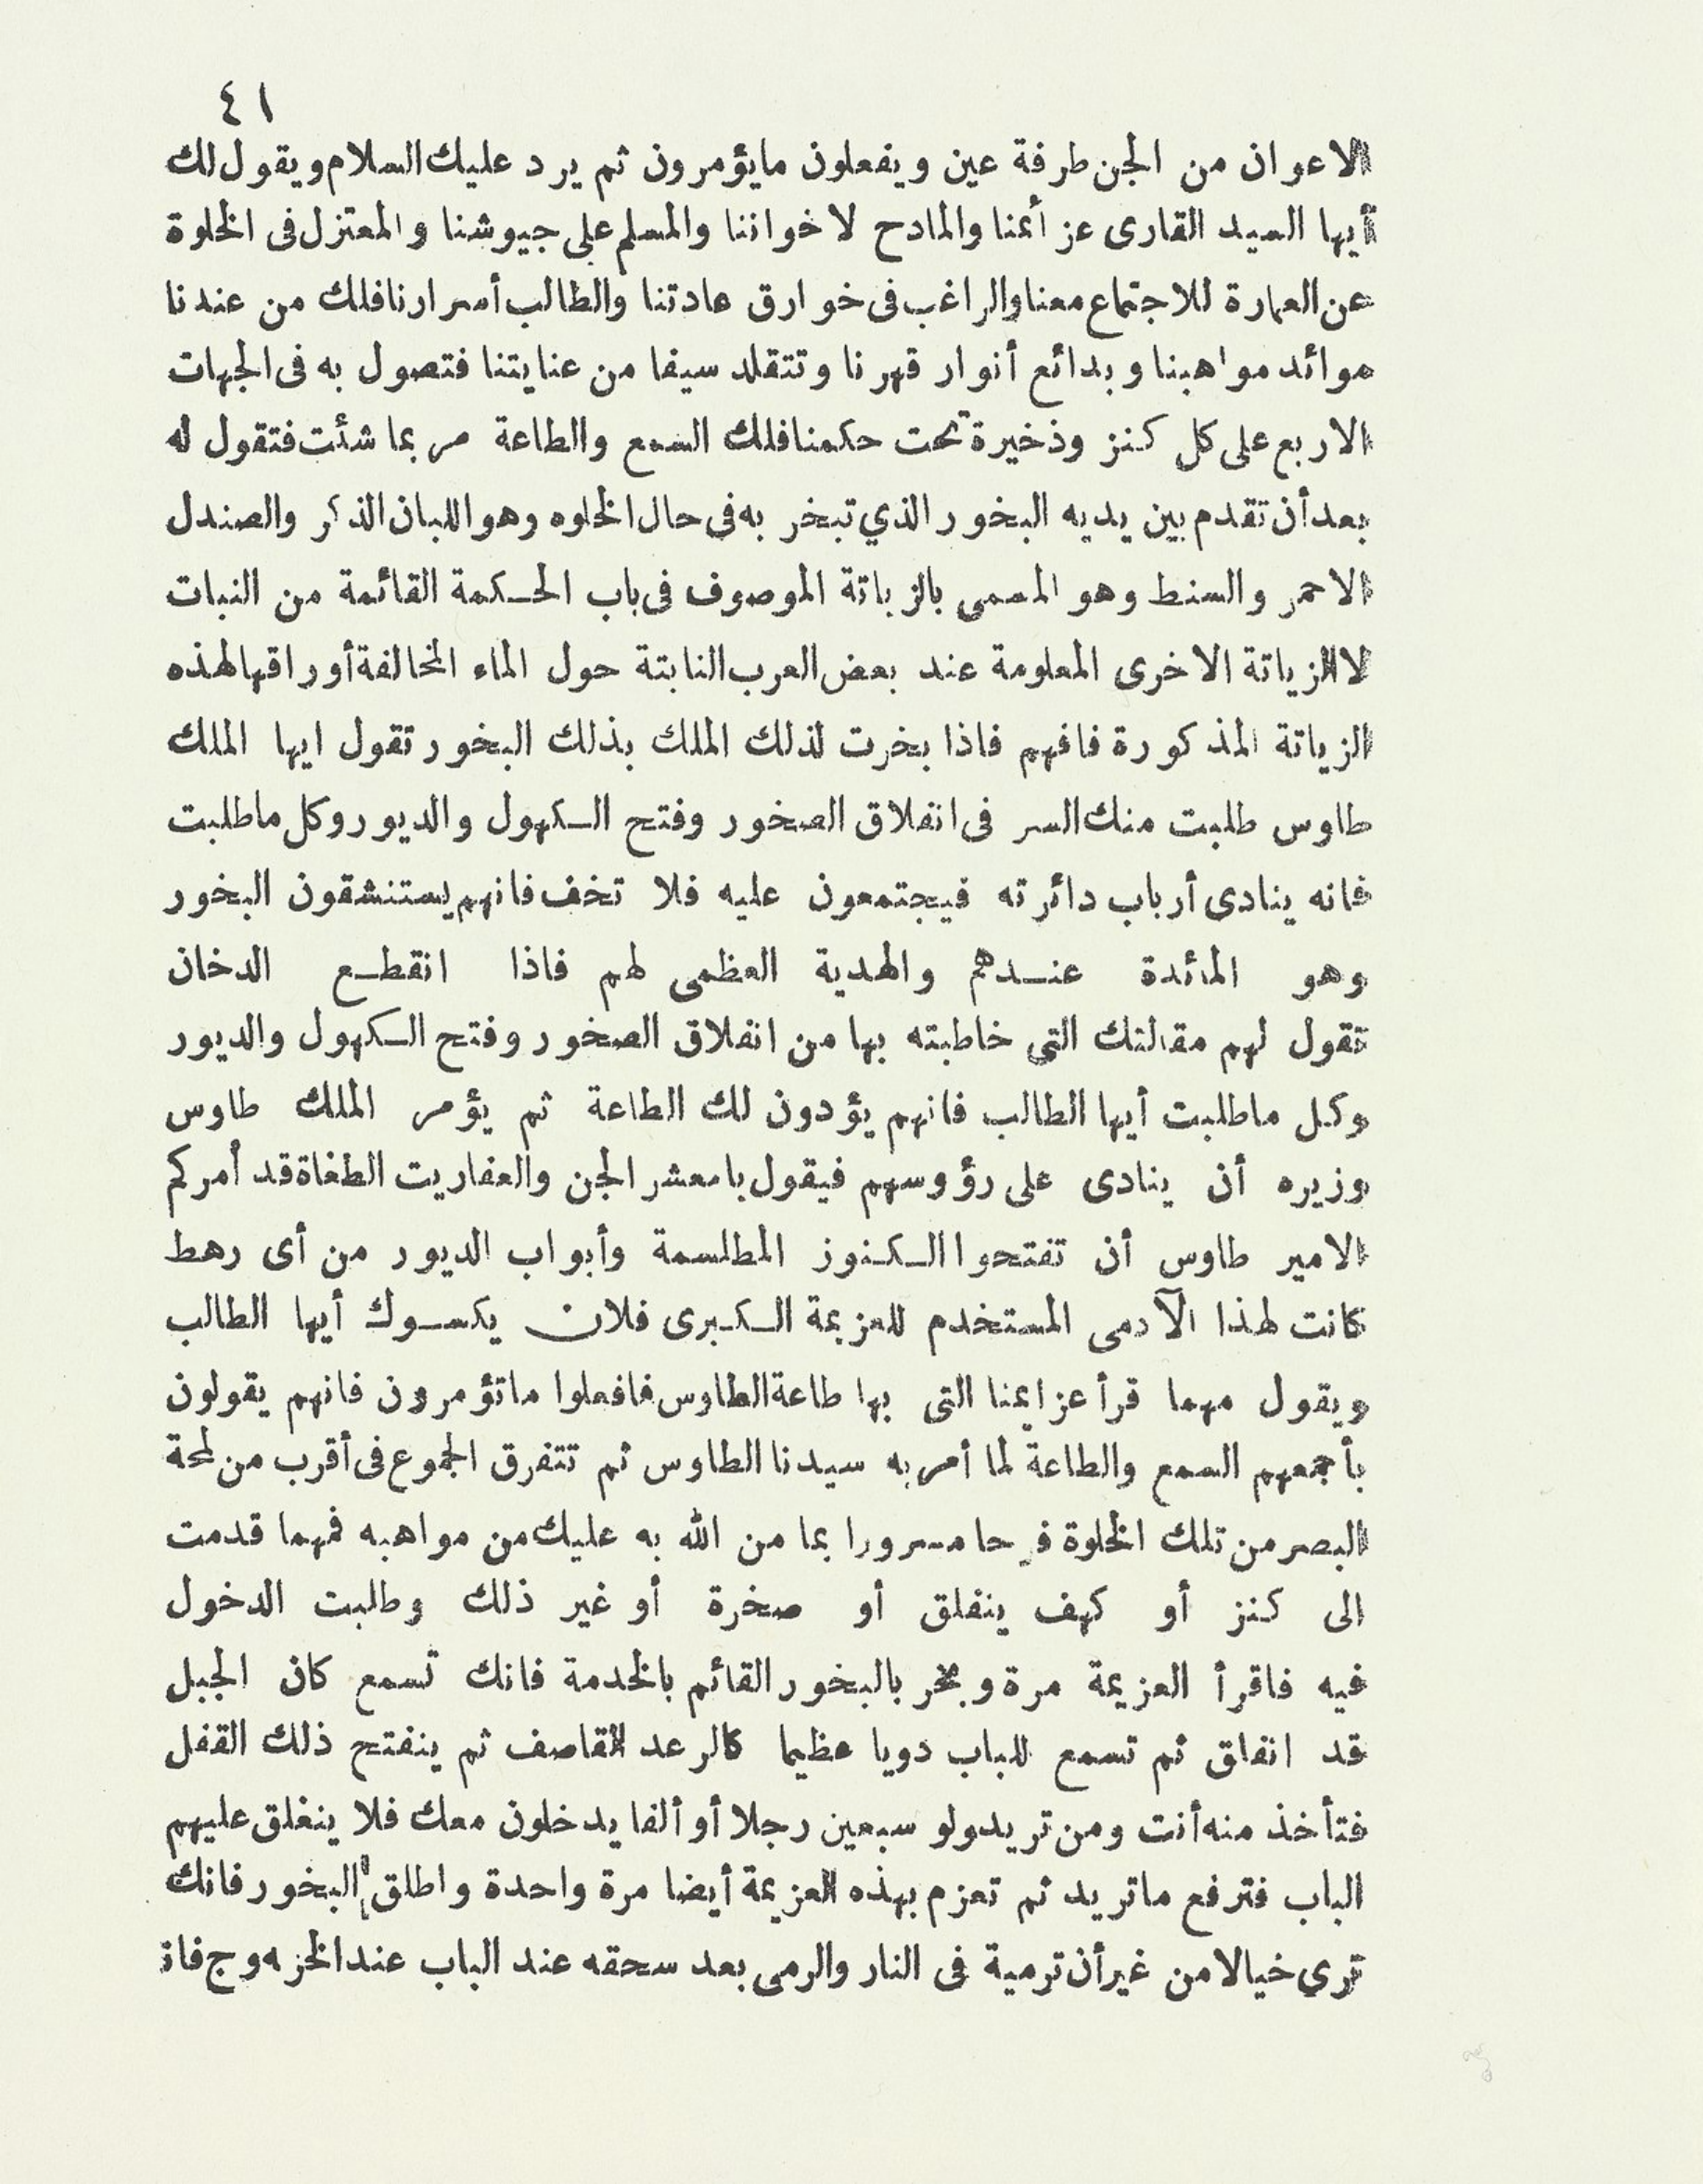 ٤١
الاعوان من الجن طرفة عين ويفعلون مايؤمرون ثم يرد عليك السلام ويقول لك
أيها السيد القارى عزائمنا والمادح لاخواننا والمسلم على جيوشنا والمعتزل فى الخلوة
عن العمارة للاجتماع معنا والراغب فى خوارق عادتنا والطالب أسرارنا فلك من عندنا
موائد مواهبنا وبدائع أنوار قهرنا وتتقلد سيفا من عنايتنا فتصول به فى الجهات
الاربع على كل كنز وذخيرة تحت حكمنا فلك السمع والطاعة مر بما شئت فتقول له
بعد أن تقدم بين يديه البخور الذي تبخر به فى حال الخلوه وهو اللبان الذكر والصندل
الاحمر والسنط وهو المسمى بالزباتة الموصوف فى باب الحكمة القائمة من النبات
لا الزياتة الاخرى المعلومة عند بعض العرب النابتة حول الماء المخالفة أوراقها لهذه
الزياتة المذكورة فافهم فاذا بخرت لذلك الملك بذلك البخور تقول ايها الملك
طاوس طلبت منك السر فى انفلاق الصخور وفتح الكهول والديور وكل ماطلبت
فانه ينادى أرباب دائرته فيجتمعون عليه فلا تخف فانهم يستنشقون البخور
وهو المائدة عندهم والهدية العظمى لهم فاذا انقطع الدخان
تقول لهم مقالتك التى خاطبته بها من انفلاق الصخور وفتح الكهول والديور
وكل ماطلبت أيها الطالب فانهم يؤدون لك الطاعة ثم يؤمر الملك طاوس
وزيره أن ينادى على رؤوسهم فيقول يامعشر الجن والعفاريت الطغاة قد أمركم
الامير طاوس أن تفتحوا الكنوز المطلسمة وأبواب الديور من أى رهط
كانت لهذا الآدمى المستخدم للعزيمة الكبرى فلان يكسوك أيها الطالب
ويقول مهما قرأ عزايمنا التى بها طاعة الطاوس فافعلوا ماتؤمرون فانهم يقولون
بأجمعهم السمع والطاعة لما أمر به سيدنا الطاوس ثم تتفرق الجموع فى أقرب من لمحة
البصر من تلك الخلوة فرحا مسرورا بما من الله به عليك من مواهبه فمهما قدمت
الى كنز أو كهف ينفلق أو صخرة أو غير ذلك وطلبت الدخول
فيه فاقرأ العزيمة مرة وبخر بالبخور القائم بالخدمة فانك تسمع كان الجبل
قد انفلق ثم تسمع للباب دويا عظيما كالرعد القاصف ثم ينفتح ذلك القفل
فتأخذ منه أنت ومن تريد ولو سبعين رجلا أو ألفا يدخلون معك فلا ينغلق عليهم
الباب فترفع ماتريد ثم تعزم بهذه العزيمة أيضا مرة واحدة واطلق البخور فانك
ترى خيالا من غير أن ترمية فى النار والرمى بعد سحقه عند الباب عند